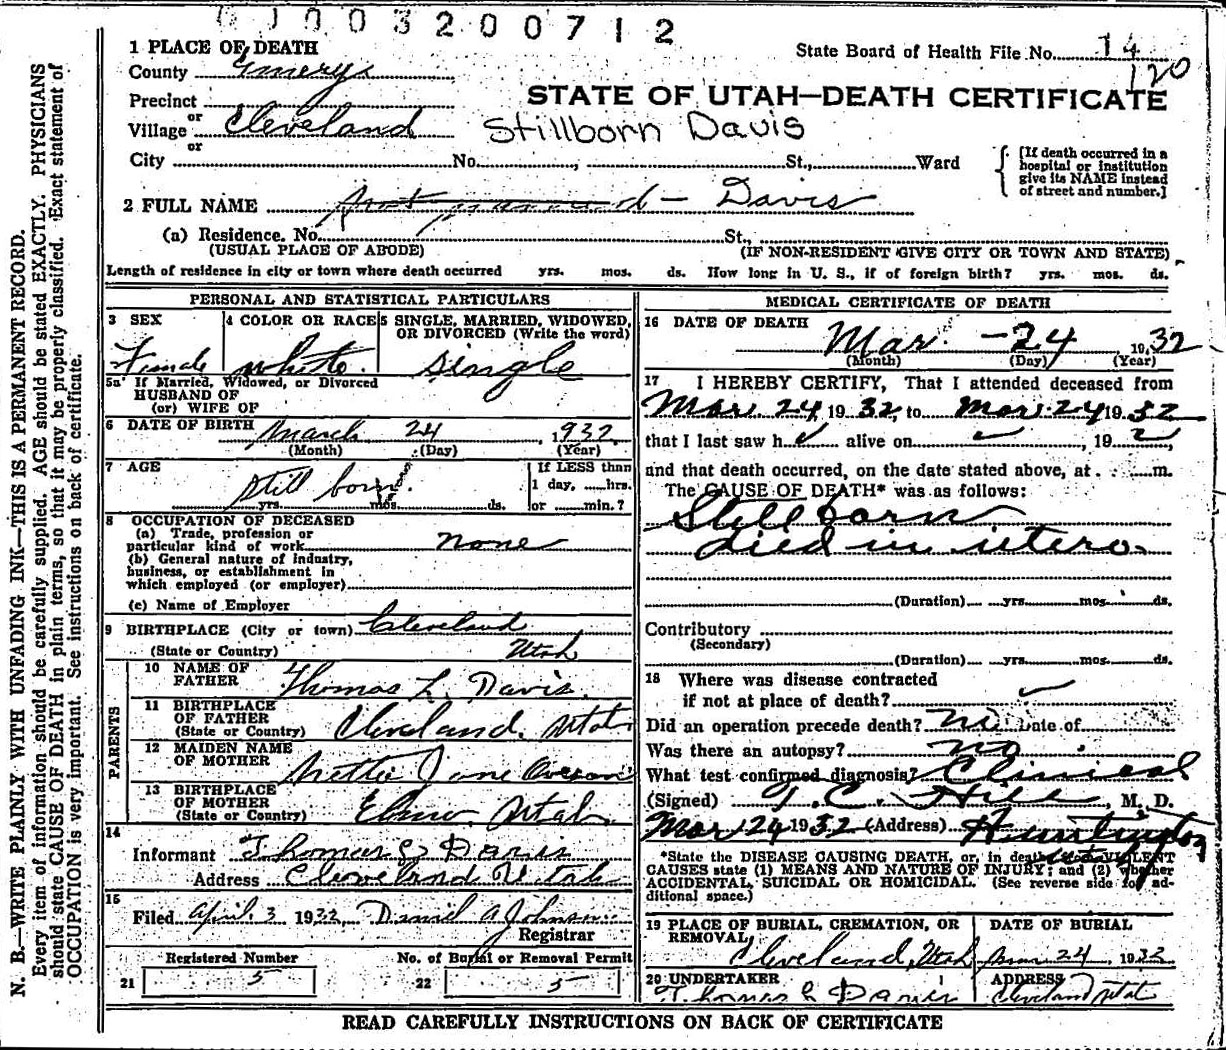 003200712
1 PLACE OF DEATH
State Board of Health File No. 14
120
County Emery
STATE OF UTAH—DEATH CERTIFICATE
Precinct
or
Village Cleveland
Stillborn Davis
or
City No. , St., Ward
[If death occurred in a hospital or institution give its NAME instead of street and number.]
2 FULL NAME not named - Davis
(a) Residence. No. St.,
(USUAL PLACE OF ABODE) (IF NON-RESIDENT GIVE CITY OR TOWN AND STATE)
Length of residence in city or town where death occurred yrs. mos. ds. How long in U. S., if of foreign birth? yrs. mos. ds.
PERSONAL AND STATISTICAL PARTICULARS
3 SEX
Female
4 COLOR OR RACE
white.
5 SINGLE, MARRIED, WIDOWED,
OR DIVORCED (Write the word)
Single
5a If Married, Widowed, or Divorced
HUSBAND OF
(or) WIFE OF
6 DATE OF BIRTH March 24, 1932
(Month) (Day) (Year)
7 AGE
still born
yrs. mos. ds.
If LESS than
1 day, hrs.
or min.?
8 OCCUPATION OF DECEASED
(a) Trade, profession or
particular kind of work none
(b) General nature of industry,
business, or establishment in
which employed (or employer)
(c) Name of Employer
9 BIRTHPLACE (City or town) Cleveland
(State or Country) Utah
PARENTS
10 NAME OF
FATHER Thomas L. Davis
11 BIRTHPLACE
OF FATHER
(State or Country) Cleveland, Utah
12 MAIDEN NAME
OF MOTHER Netta Jane Oveson
13 BIRTHPLACE
OF MOTHER
(State or Country) Elmo, Utah
14
Informant Thomas L Davis
Address Cleveland Utah
15
Filed April 3 1932 Daniel A Johnson
Registrar
Registered Number No. of Burial or Removal Permit
21 5 22 5
MEDICAL CERTIFICATE OF DEATH
16 DATE OF DEATH
Mar. -24 1932
(Month) (Day) (Year)
17 I HEREBY CERTIFY, That I attended deceased from
Mar 24, 1932, to Mar. 24 1932
that I last saw h alive on , 19
and that death occurred, on the date stated above, at m.
The CAUSE OF DEATH* was as follows:
Still born
died in utero.
(Duration) yrs. mos. ds.
Contributory
(Secondary)
(Duration) yrs. mos. ds.
18 Where was disease contracted
if not at place of death?
Did an operation precede death? no Date of
Was there an autopsy? no
What test confirmed diagnosis? Clinical
(Signed) T. C. Hill, M. D.
Mar 24 1932 (Address) Huntington
Utah
*State the DISEASE CAUSING DEATH, or, in deaths from VIOLENT
CAUSES state (1) MEANS AND NATURE OF INJURY; and (2) whether
ACCIDENTAL, SUICIDAL OR HOMICIDAL. (See reverse side for ad-
ditional space.)
19 PLACE OF BURIAL, CREMATION, OR
REMOVAL
Cleveland, Utah
DATE OF BURIAL
Mar 24, 1932
20 UNDERTAKER
Thomas L Davis
ADDRESS
Cleveland Utah
READ CAREFULLY INSTRUCTIONS ON BACK OF CERTIFICATE
N. B.—WRITE PLAINLY WITH UNFADING INK—THIS IS A PERMANENT RECORD.
Every item of information should be carefully supplied. AGE should be stated EXACTLY. PHYSICIANS
should state CAUSE OF DEATH in plain terms, so that it may be properly classified. Exact statement of
OCCUPATION is very important. See instructions on back of certificate.